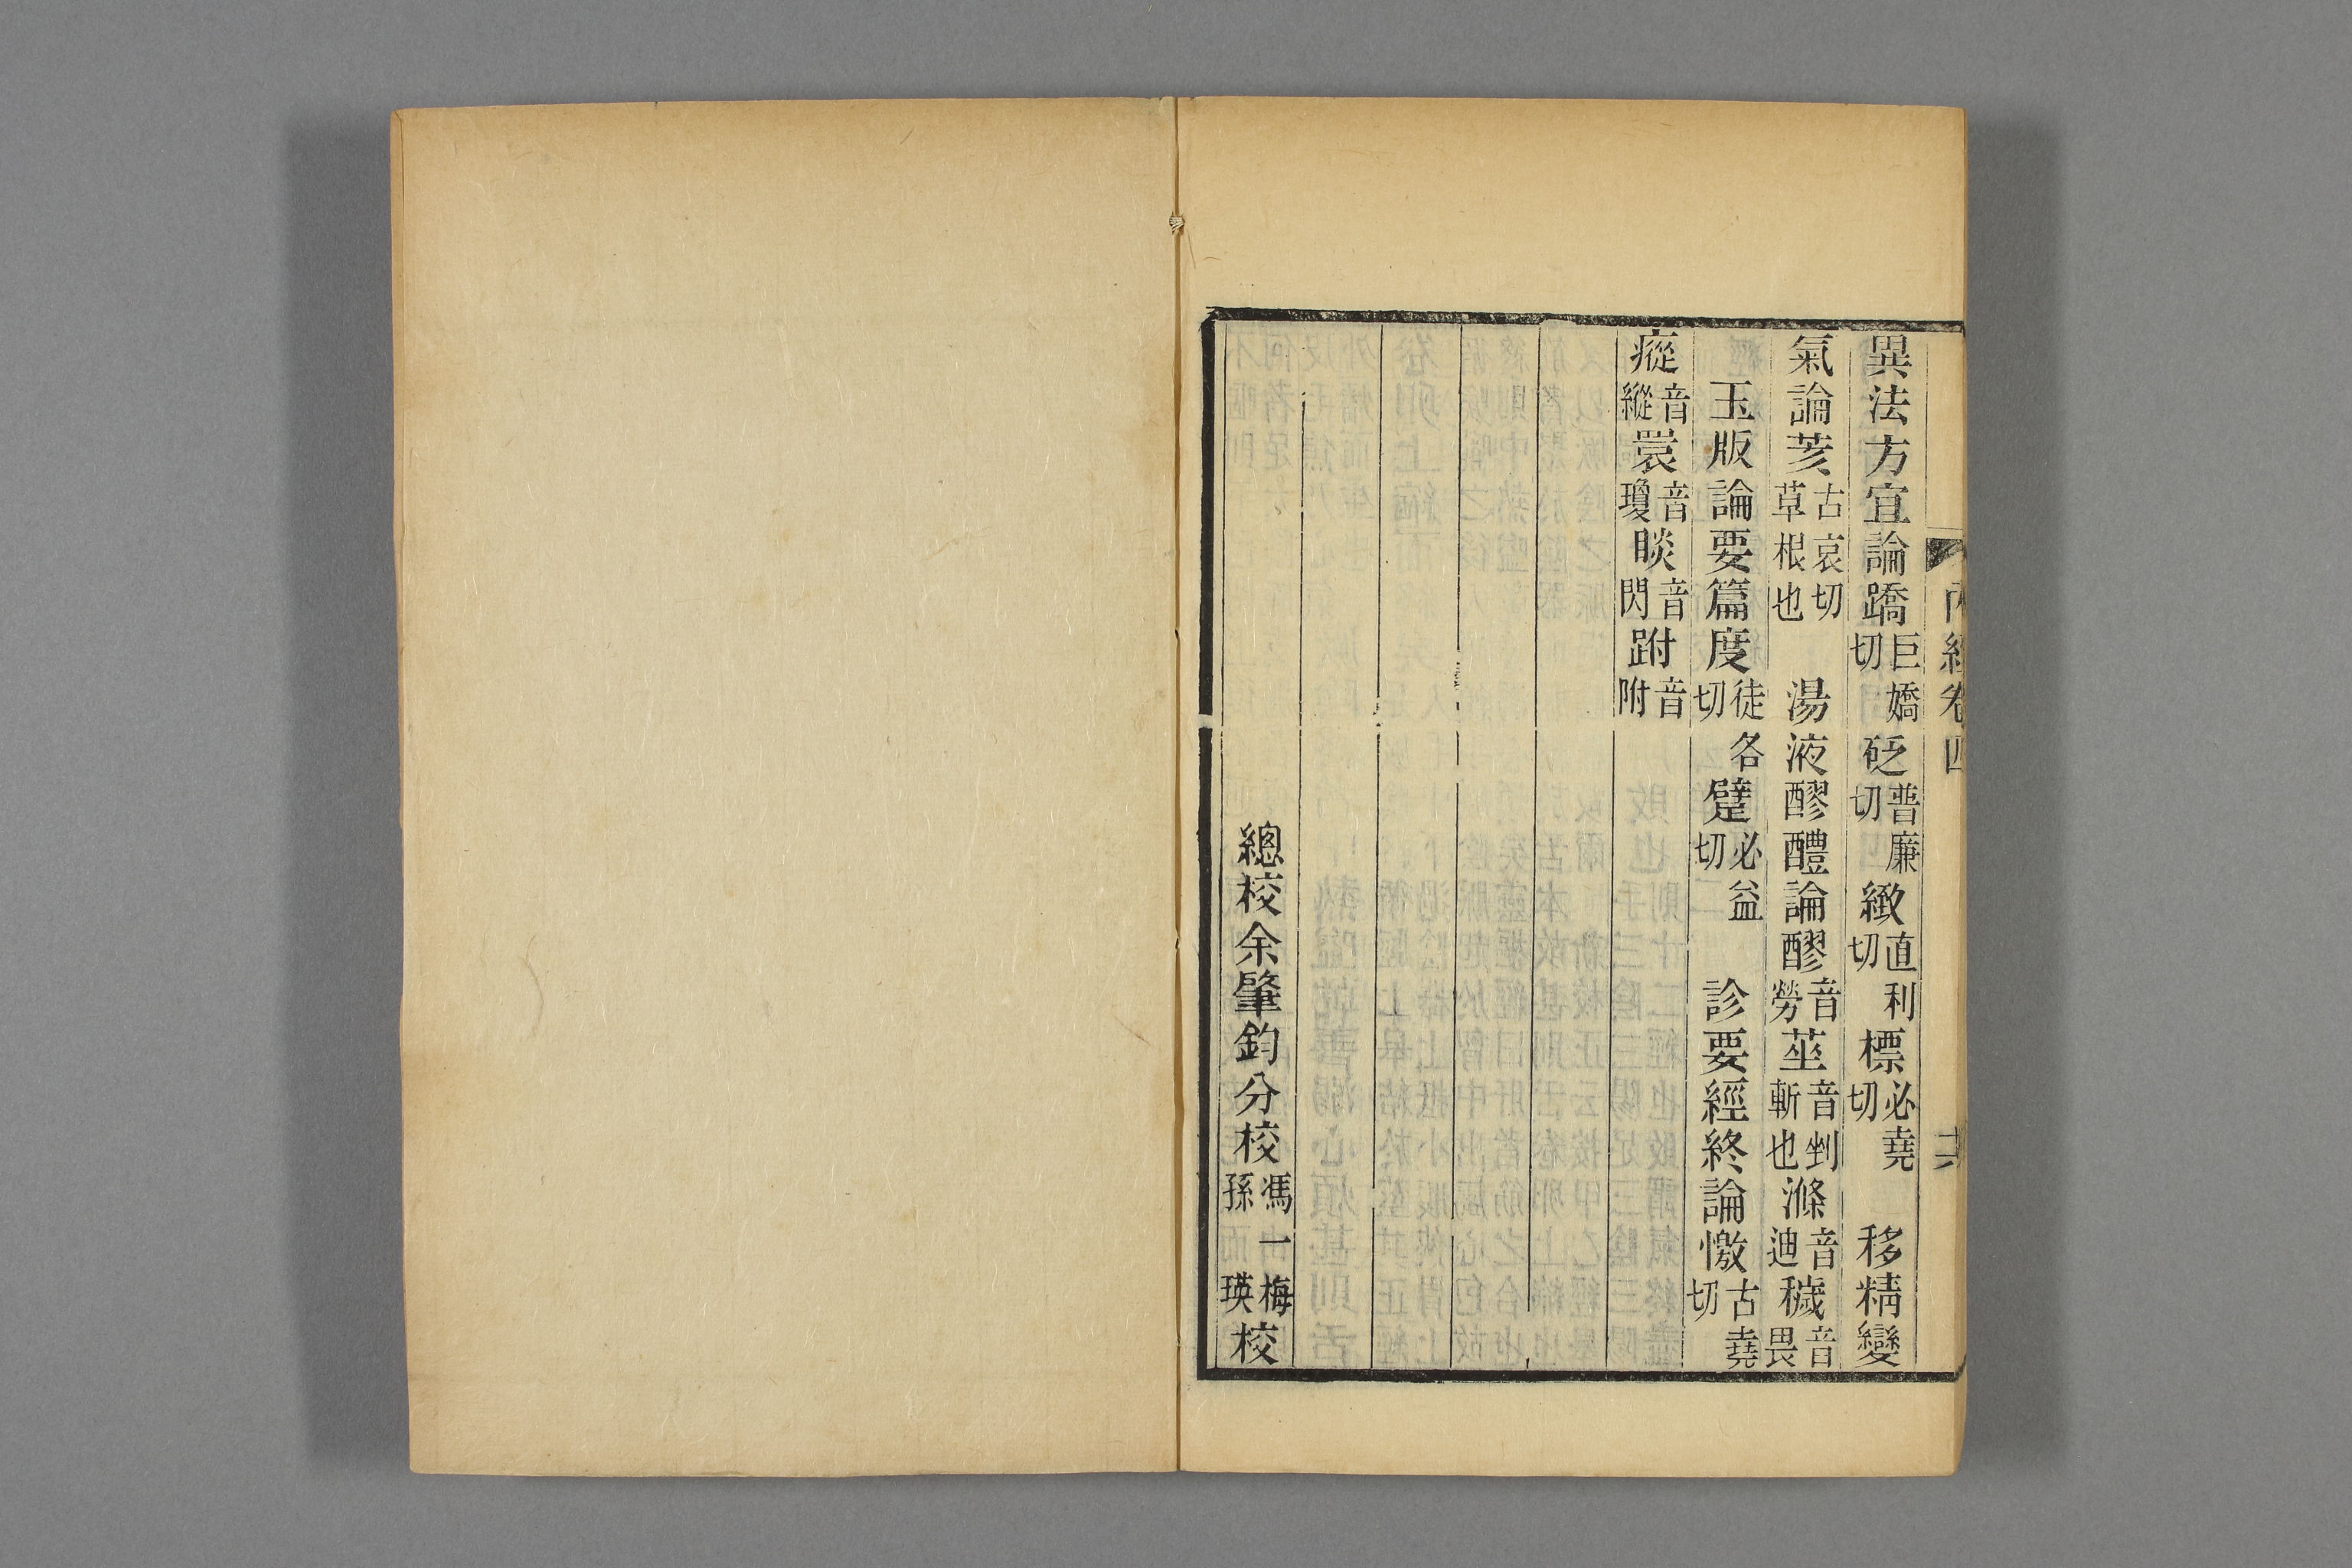 內經卷四
異法方宜論蹻巨嬌切砭普廉切緻直利切標必堯切　移精變
氣論荄古哀切草根也　湯液醪醴論醪音勞莝音剉斬也滌音迪穢音畏
玉版論要篇度徒各切躄必益切　診要經終論憿古堯切
瘲音縱睘音瓊睒音閃跗音附
總校余肇鈞分校馮一梅孫瑛校